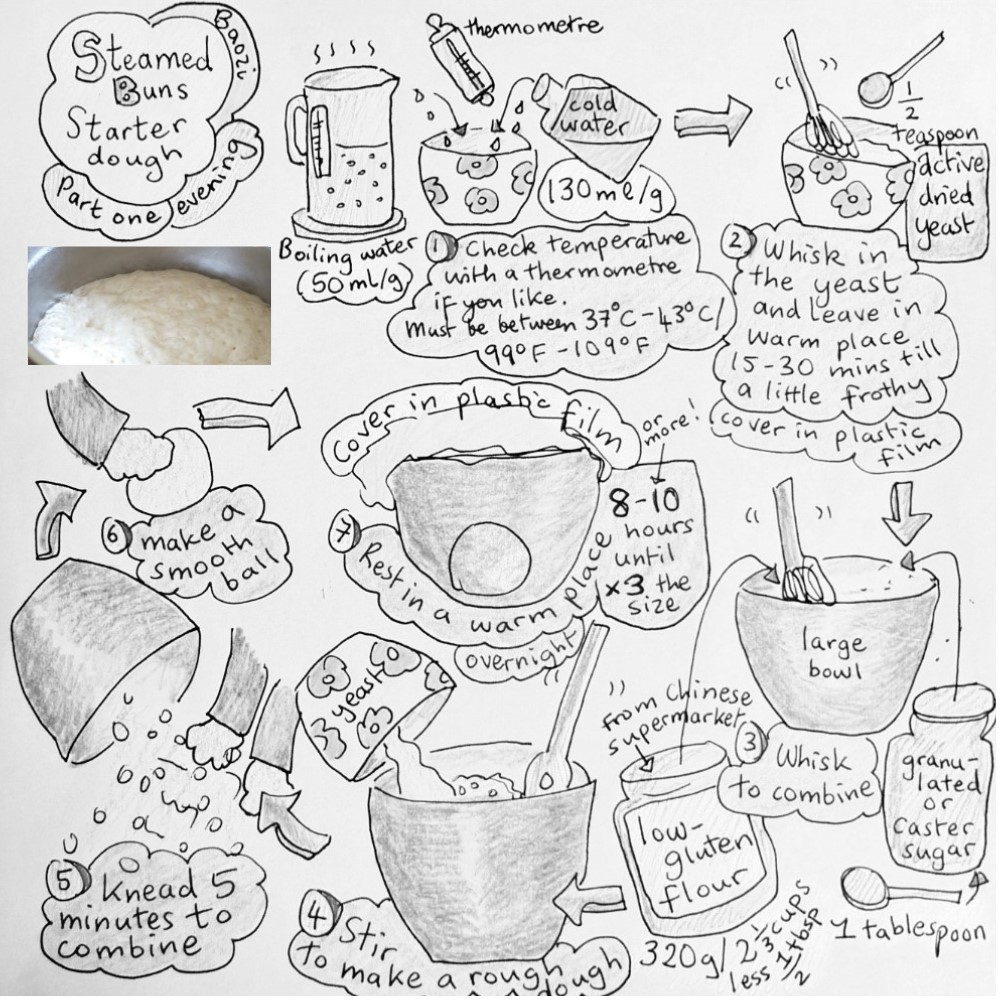 Steamed
Buns
Starter
dough
Baozi
Part one
evening
thermometre
cold
water
130ml/g
Boiling water
(50ml/g)
1 Check temperature
with a thermometre
if you like.
Must be between 37°C-43°C/
99°F-109°F
1/2
teaspoon
active
dried
yeast
2 Whisk in
the yeast
and leave in
warm place
15-30 mins till
a little frothy
cover in plastic
film
large
bowl
3 Whisk
to combine
granu-
lated
or
caster
sugar
1 tablespoon
from Chinese
supermarket
low-
gluten
flour
320g/2 1/3 cups
less 1/2 tbsp
yeast
4 Stir
to make a rough
dough
5 Knead 5
minutes to
combine
6 make a
smooth
ball
cover in plastic film
7 Rest in a warm place
overnight
or
more!
8-10
hours
until
x3 the
size